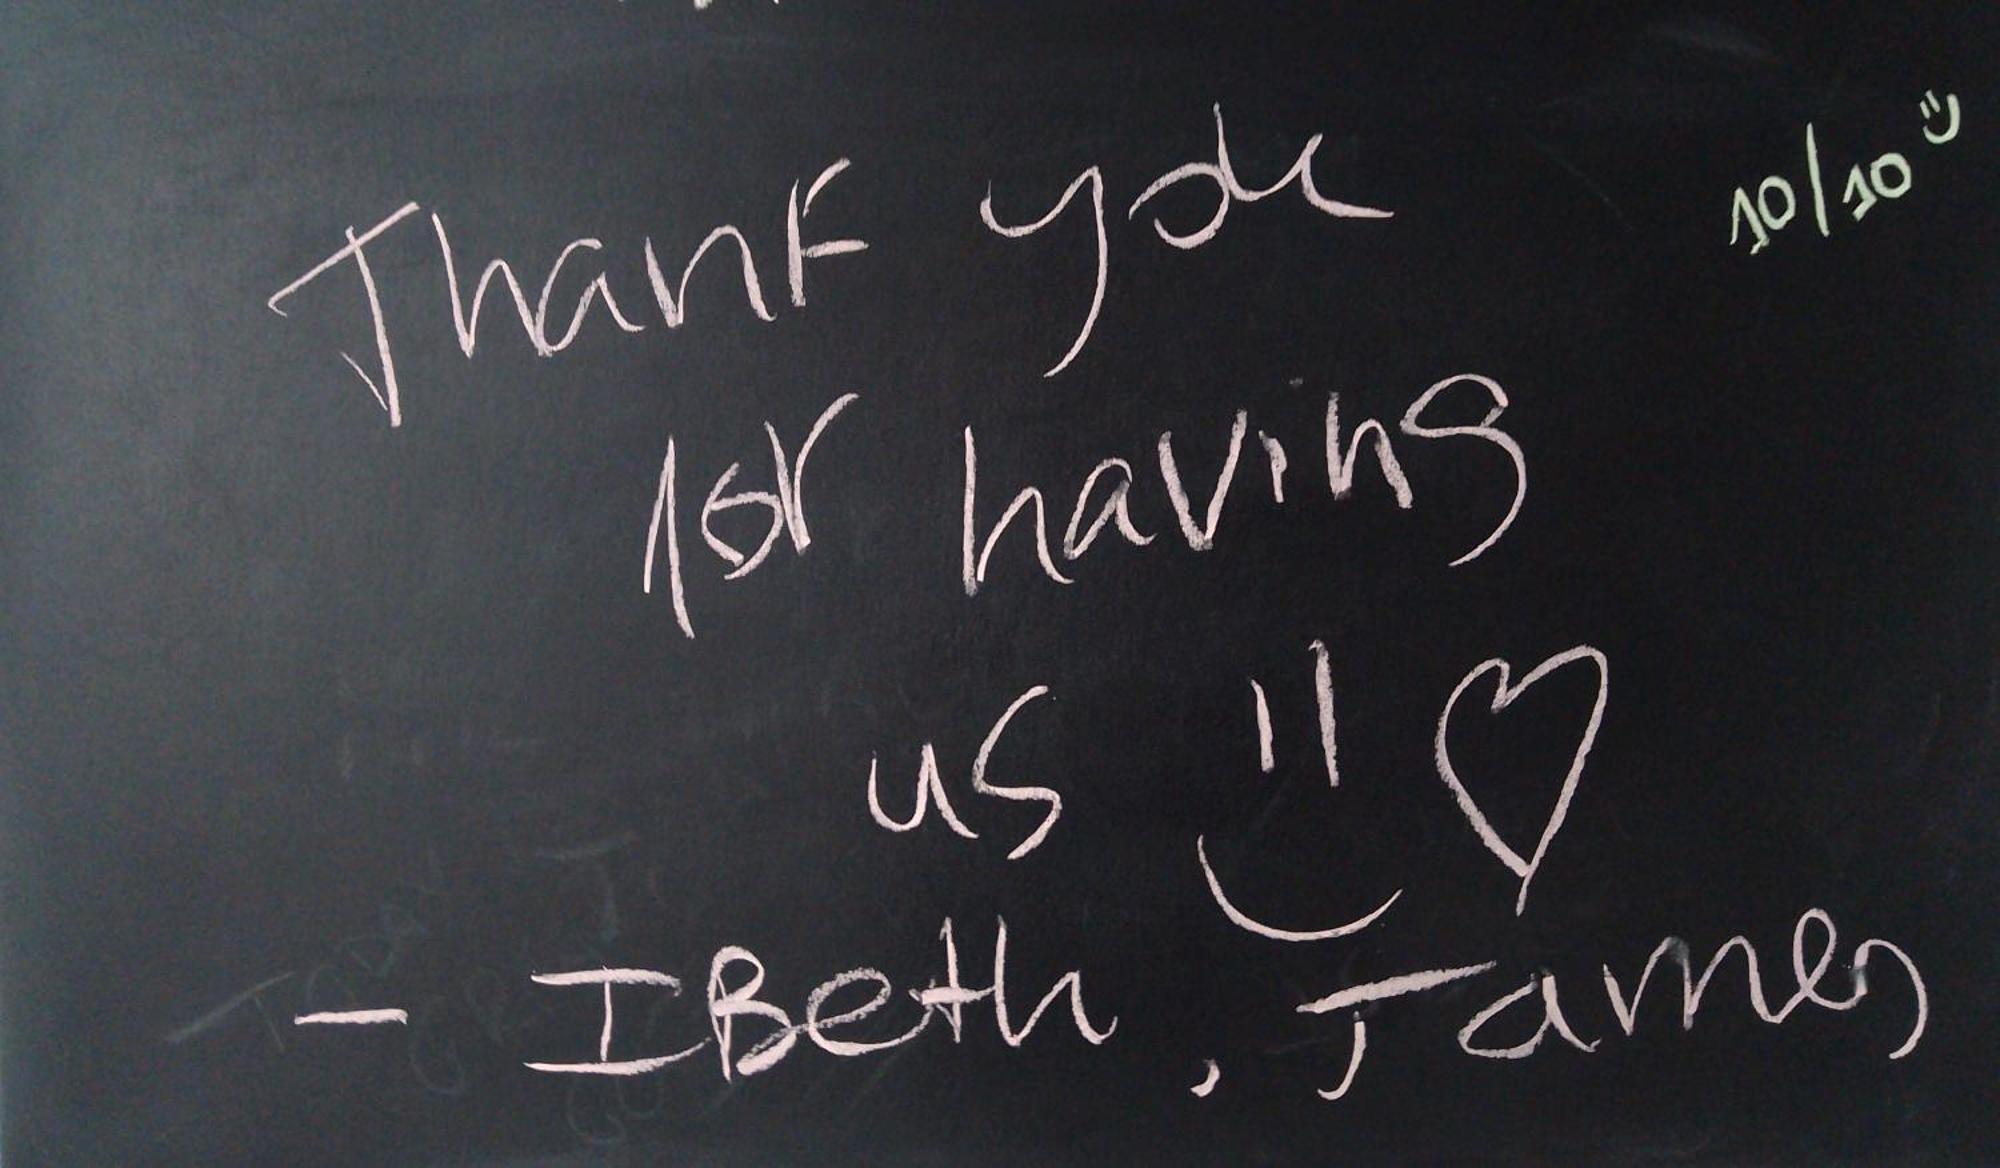 10/10
Thank you
for having
us
- IBeth, James